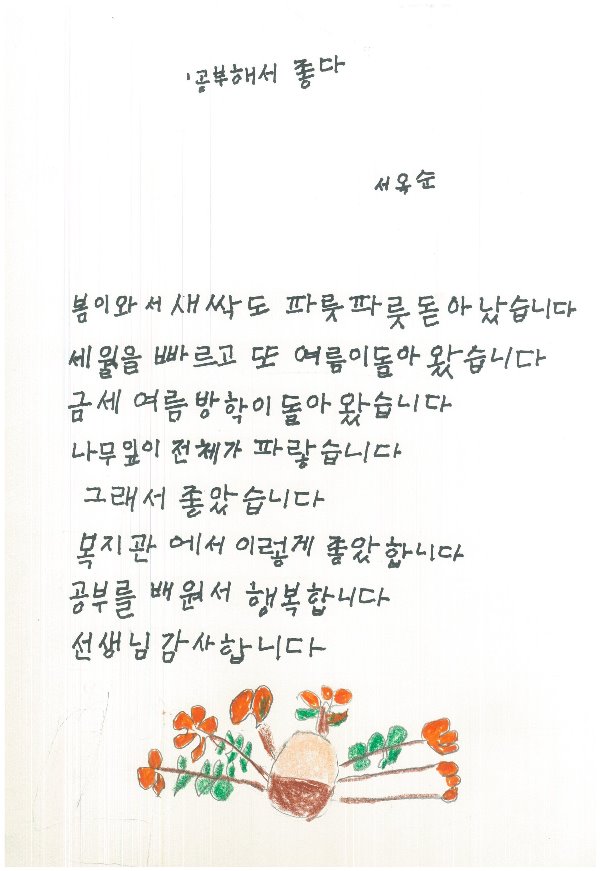 공부해서 좋다
서옥순
봄이와서 새싹도 파릇파릇돋아났습니다
세월을 빠르고 또 여름이돌아왔습니다
금세 여름방학이돌아왔습니다
나무잎이 전체가 파랗습니다
그래서 좋았습니다
복지관에서 이렇게 좋았합니다
공부를 배원서 행복합니다
선생님감사합니다